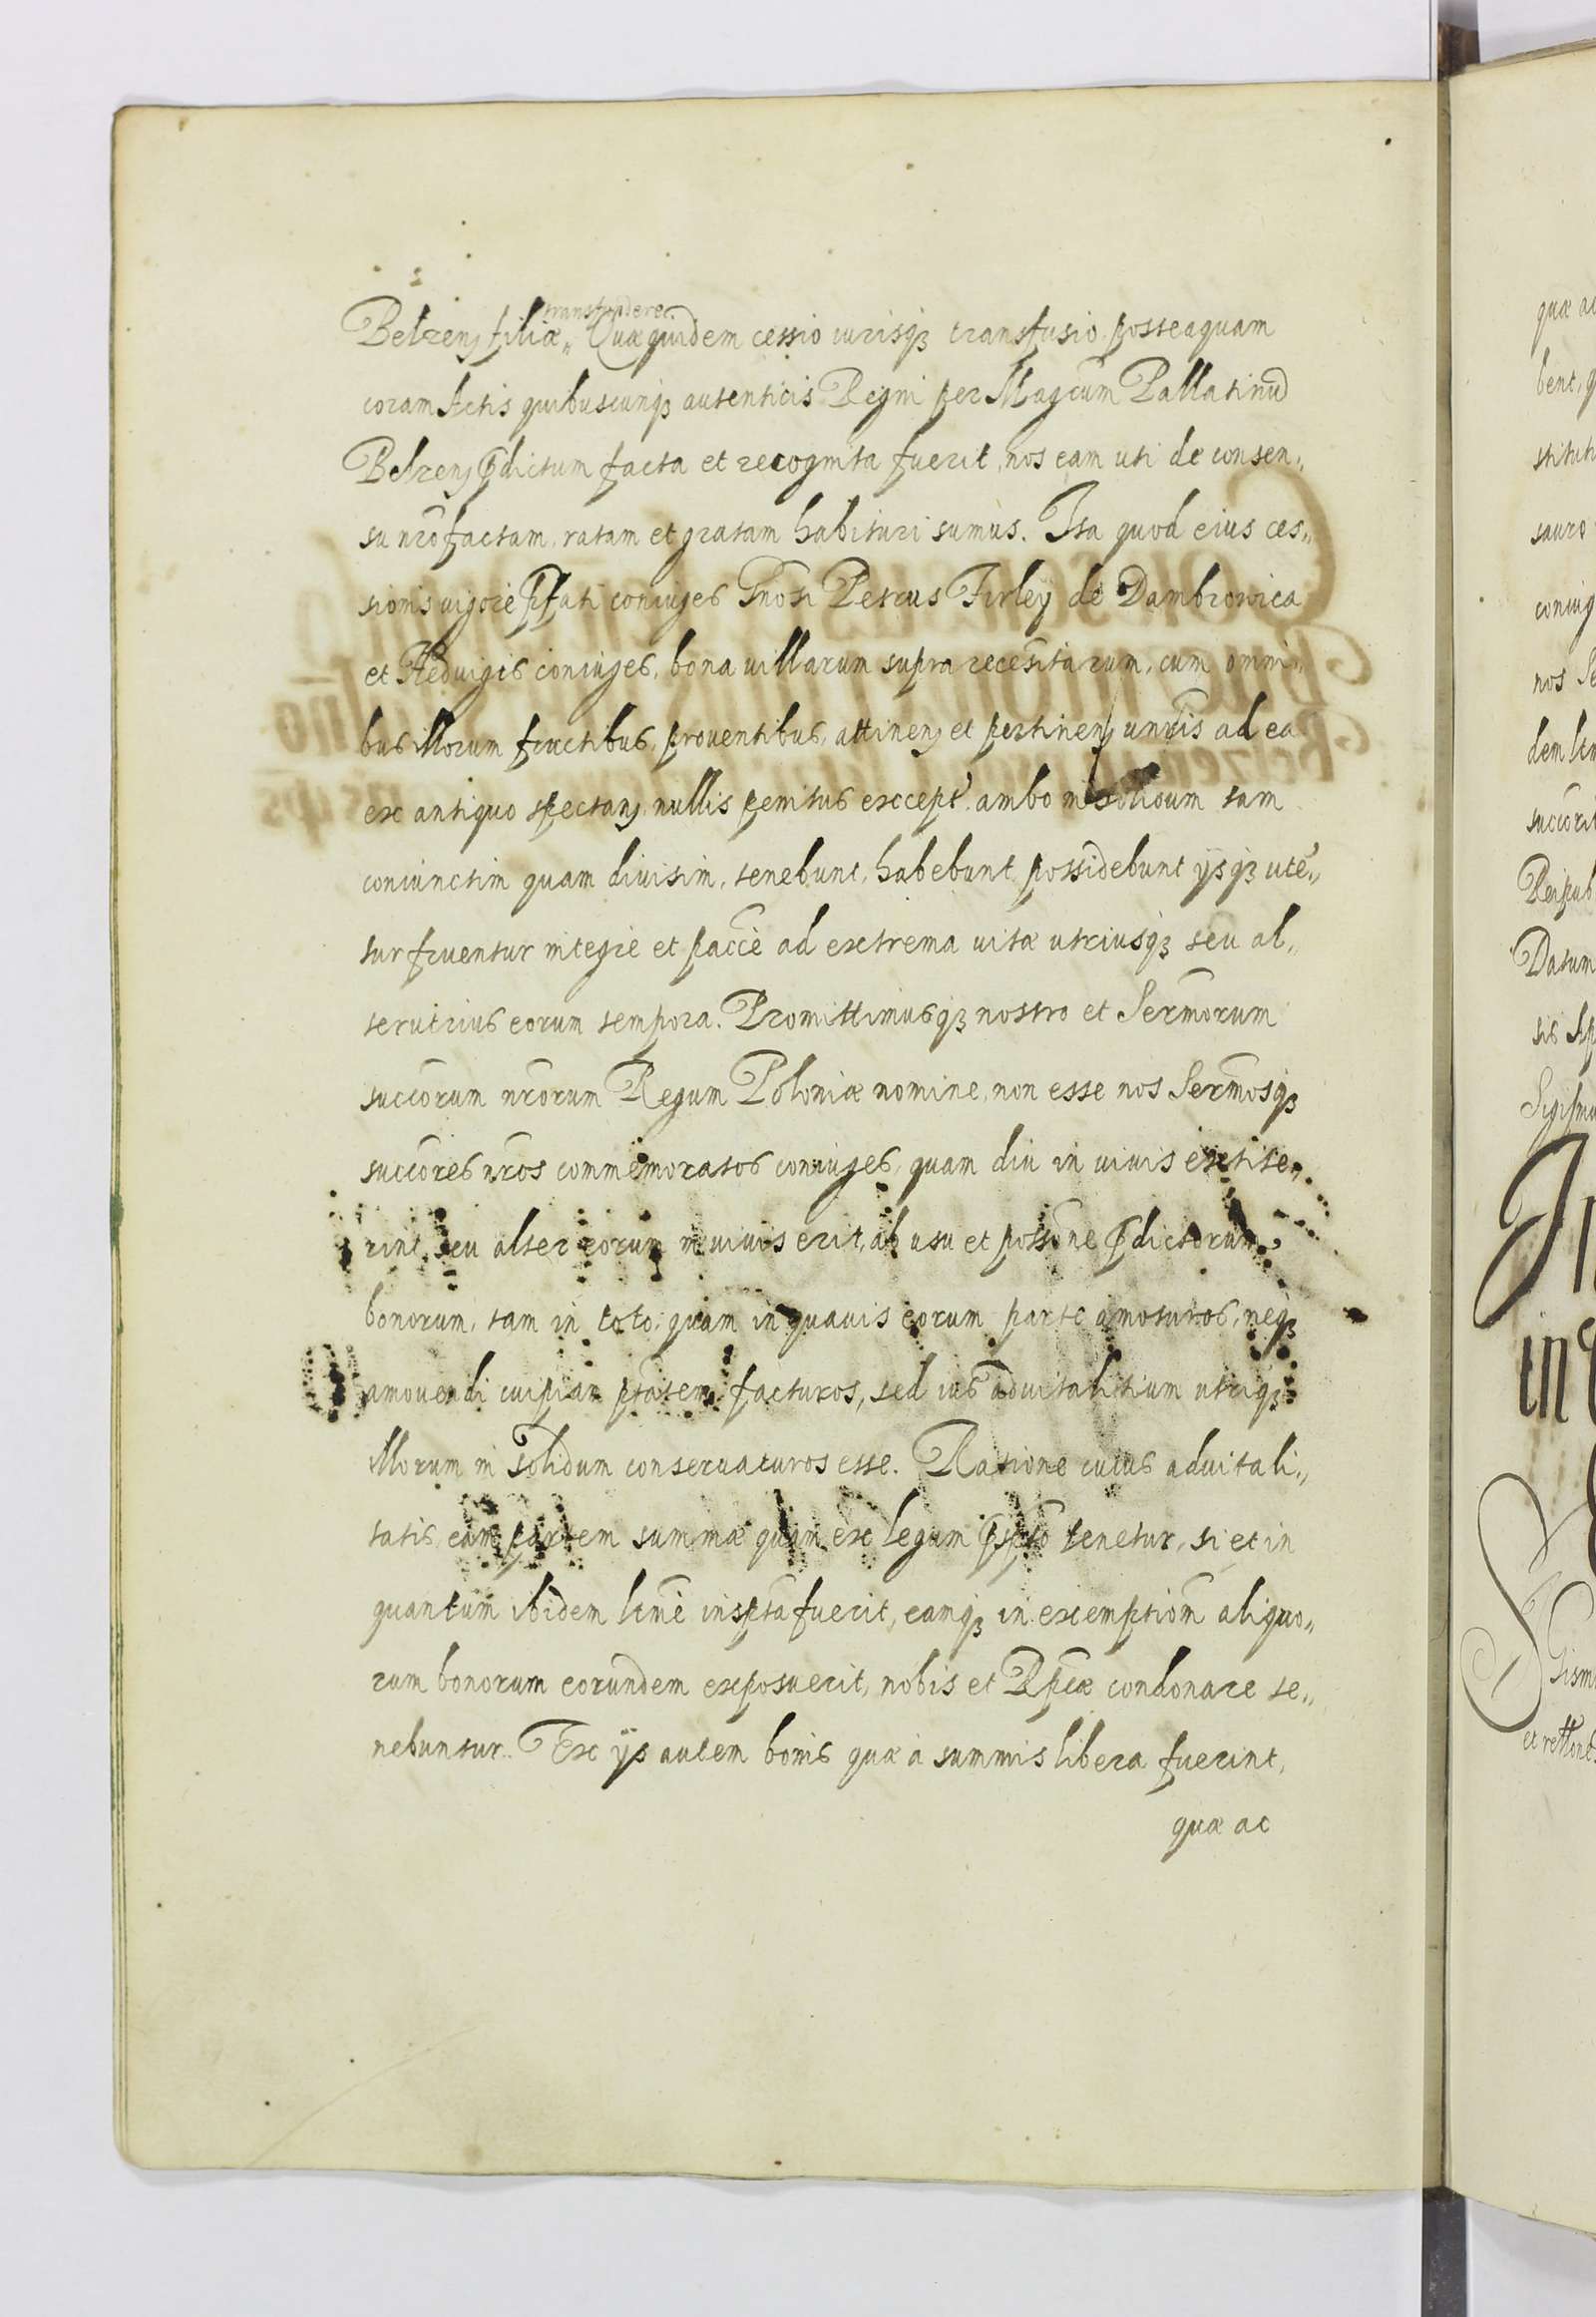 transfundere.
Belzen filiæ„ Quæquidem cessio iurisq3 transfusio posteaquam
coram Actis quibuscunq3 autenticis Regni per Magcum Pallatinū
Belzen p̄dictum facta et recognita fuerit, nos eam uti de consen„
su nr̄o factam, ratam et gratam habituri sumus. Ita quod eius ces„
sionis vigore p̄fati coniuges Gnosi Petrus Firley de Dambrowica
et Hedvigis coniuges, bona villarum supra recensitarum, cum omni„
bus illorum fructibus, proventibus, attinen et pertinen unr̄is ad ea
ex antiquo spectan, nullis penitus except̄ ambo in solidum tam
coniunctim quam divisim, tenebunt, habebunt possidebunt ijsq3 utē„
tur fruentur integre et pacc̄e ad extrema vitæ utriusq3 seu al„
terutrius eorum tempora. Promittimusq3 nostro et Sermorum
succōrum nr̄orum Regum Poloniæ nomine, non esse nos Sermosq3
succōres nr̄os commemoratos coniuges, quam diu in vivis extite„
rint, seu alter eorum in vivis erit, ab usu et possōne p̄dictorum
bonorum, tam in toto, quam in quavis eorum parte amoturos, neq3
amovendi cuipiam ptatem facturos, sed ius advitalitium utriq3
illorum in solidum conservaturos esse. Ratione cuius advitali„
tatis, eam partem summæ quam ex legum pspto tenetur, si et in
quantum ibidem ltmē inspta fuerit, eamq3 in exemptiom̄ aliquo„
rum bonorum eorundem exposuerit, nobis et Rpcæ condonare te„
nebuntur. Ex ijs autem bonis quæ à summis libera fuerint,
quæ ac
quæ ac
bent, q
stituti
sauro
coniug
nos Se
dem ltm
succōri
Reipub
Datum
sis Ap
Sigismu
In
in
Gism